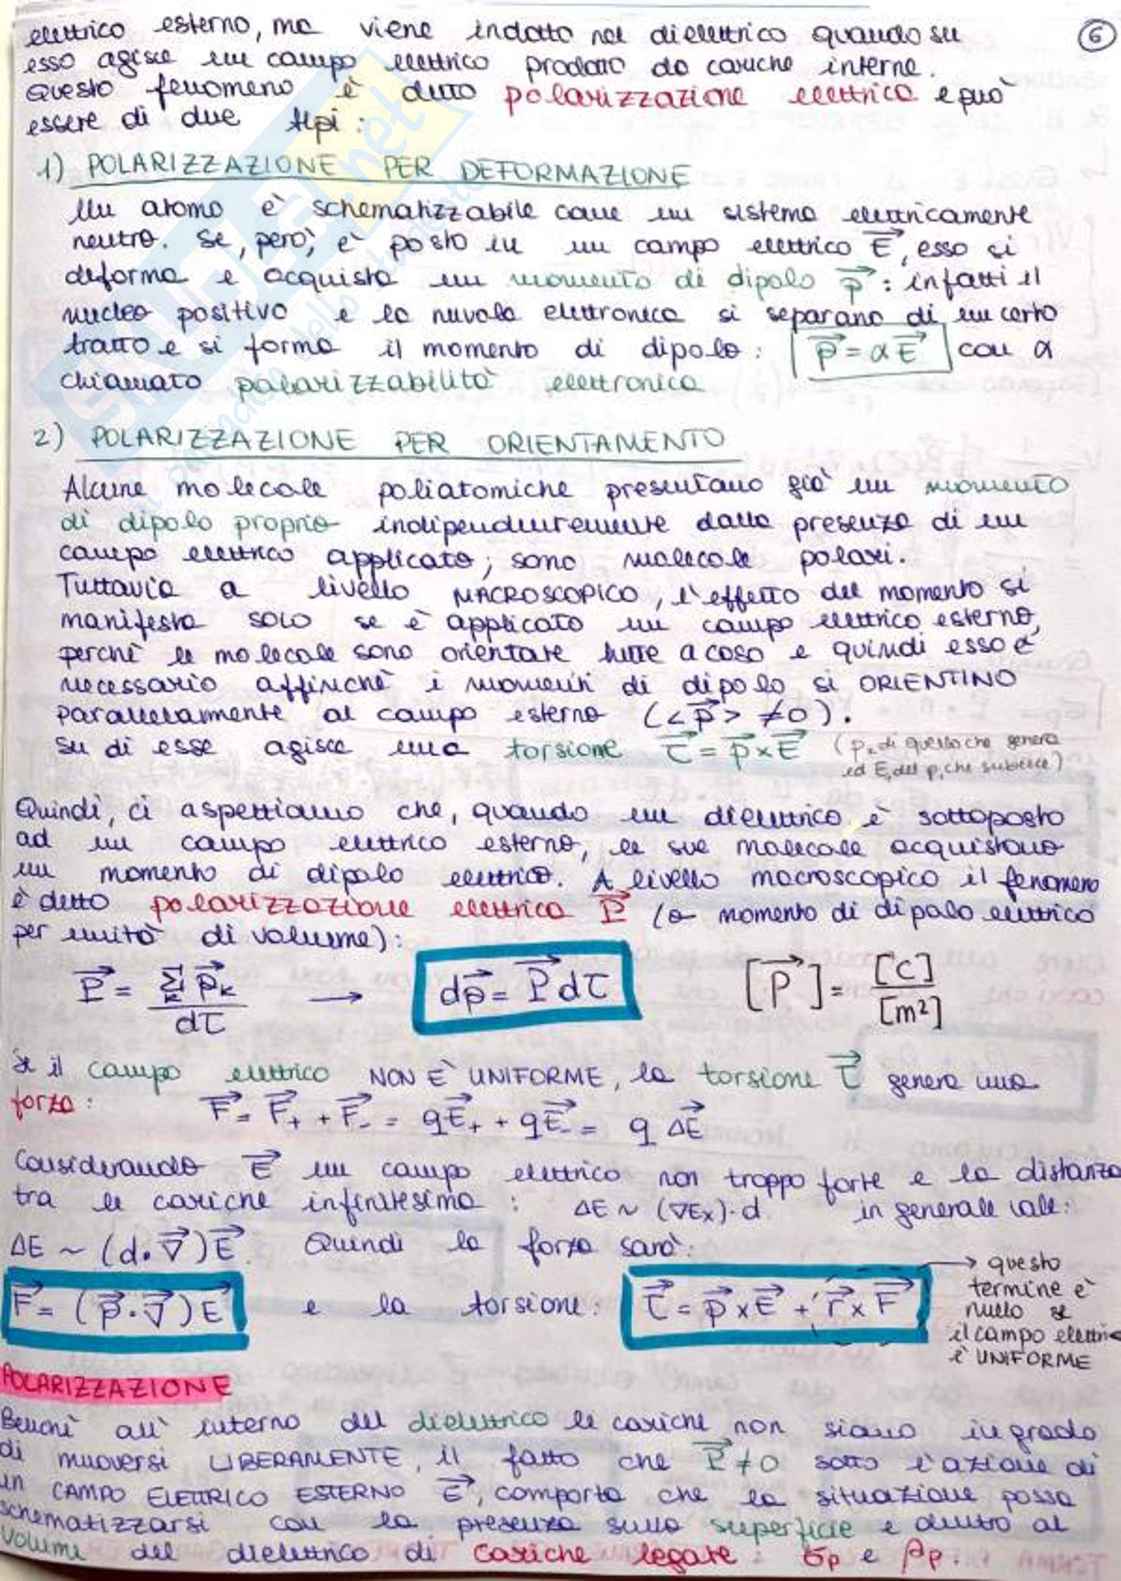 elettrico esterno, ma viene indotto nel dielettrico quando su
6
esso agisce un campo elettrico prodotto da cariche interne.
Questo fenomeno è detto polarizzazione elettrica e può
essere di due tipi:
1) POLARIZZAZIONE PER DEFORMAZIONE
Un atomo è schematizzabile come un sistema elettricamente
neutro. Se, però, è posto in un campo elettrico E⃗, esso si
deforma e acquista un momento di dipolo p⃗: infatti il
nucleo positivo e la nuvola elettronica si separano di un certo
tratto e si forma il momento di dipolo: p⃗ = αE⃗ con α
chiamato polarizzabilità elettronica
2) POLARIZZAZIONE PER ORIENTAMENTO
Alcune molecole poliatomiche presentano già un momento
di dipolo proprio indipendentemente dalla presenza di un
campo elettrico applicato; sono molecole polari.
Tuttavia a livello MACROSCOPICO, l'effetto del momento si
manifesta SOLO se è applicato un campo elettrico esterno,
perché le molecole sono orientate tutte a caso e quindi esso è
necessario affinché i momenti di dipolo si ORIENTINO
parallelamente al campo esterno (<p⃗> ≠0).
Su di esse agisce una torsione τ⃗ = p⃗ x E⃗ (p, di quello che genera
ed E, del p, che subisce)
Quindi, ci aspettiamo che, quando un dielettrico è sottoposto
ad un campo elettrico esterno, le sue molecole acquistano
un momento di dipolo elettrico. A livello macroscopico il fenomeno
è detto polarizzazione elettrica P⃗ (o momento di dipolo elettrico
per unità di volume):
P⃗ = Σₖ p⃗ₖ / dτ → dp⃗ = P⃗ dτ [P⃗] = [C] / [m²]
Se il campo elettrico NON È UNIFORME, la torsione τ⃗ genera una
forza: F⃗ = F⃗₊ + F⃗₋ = qE⃗₊ + qE⃗₋ = q ΔE⃗
Considerando E⃗ un campo elettrico non troppo forte e la distanza
tra le cariche infinitesima: ΔE ~ (∇Eₓ)·d in generale vale:
ΔE ~ (d·∇⃗)E⃗. Quindi la forza sarà:
F⃗ = (p⃗·∇⃗)E⃗ e la torsione: τ⃗ = p⃗ x E⃗ + r⃗ x F⃗
→ questo
termine è
nullo se
il campo elettrico
è UNIFORME
POLARIZZAZIONE
Benché all'interno del dielettrico le cariche non siano in grado
di muoversi LIBERAMENTE, il fatto che P⃗ ≠ 0 sotto l'azione di
un CAMPO ELETTRICO ESTERNO E⃗, comporta che la situazione possa
schematizzarsi con la presenza sulla superficie e dentro al
volume del dielettrico di cariche legate: σₚ e ρₚ.